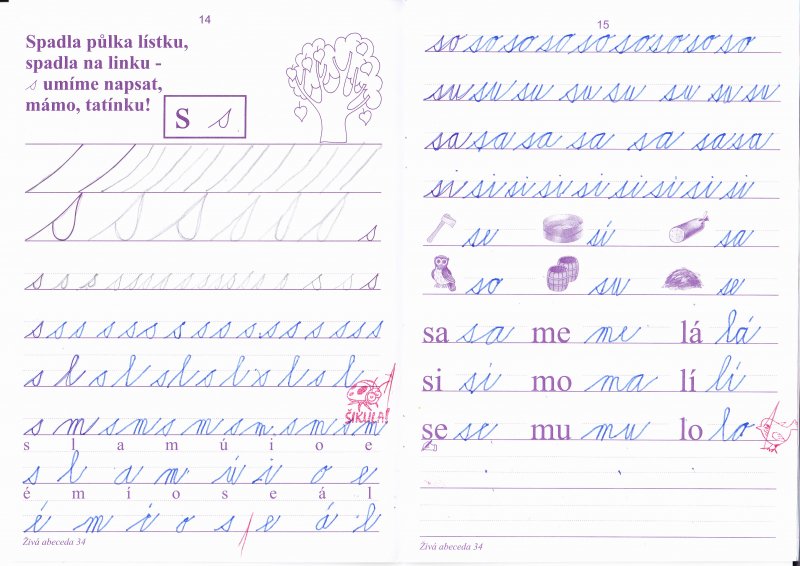 14
Spadla půlka lístku,
spadla na linku -
s umíme napsat,
mámo, tatínku!
s s
s s s s s s s
s s s s s s s s s s s s s s s
s s s s s s s s s s s s s s s s
s l s l s l s l s l s l s l
ŠIKULA!
s m s m s m s m s m s m s m
s l a m ú i o e
s l a m ú i o e
é m í o s e á l
é m í o s e á l
Živá abeceda 34
15
so so so so so so so so so
su su su su su su su su
sa sa sa sa sa sa sa sa
si si si si si si si si si
se sí sa
so su se
sa sa me me lá lá
si si mo ma lí lí
se se mu mu lo lo
Živá abeceda 34